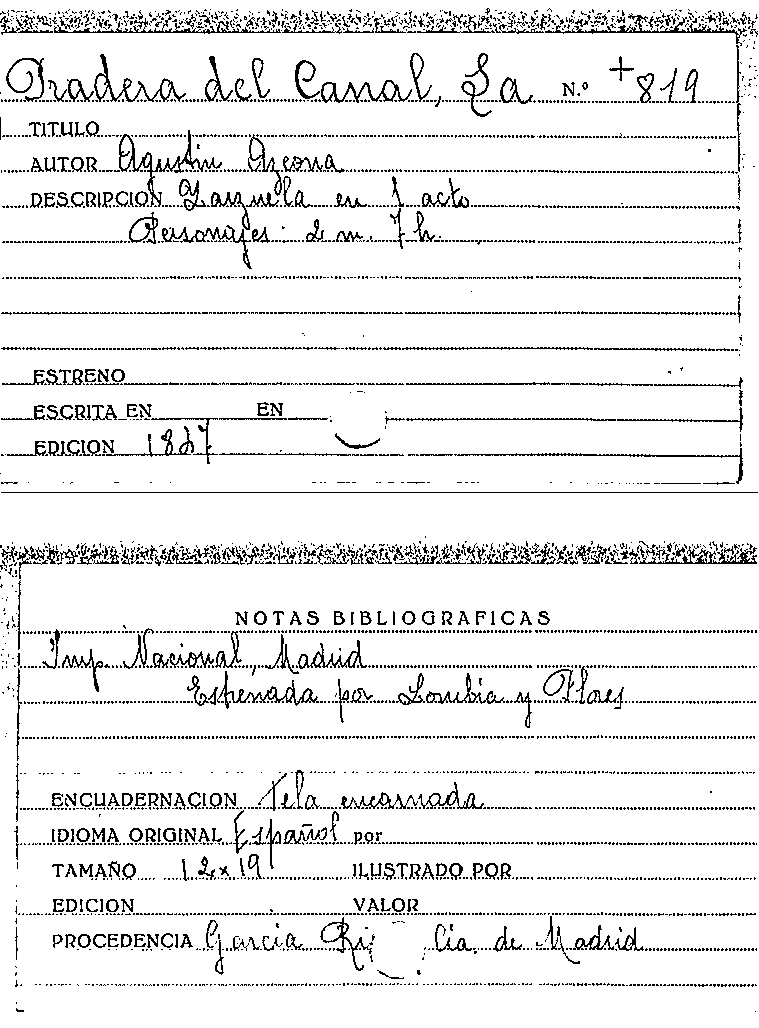 Pradera del Canal, La N.º +819
TITULO
AUTOR Agustin Azcona
DESCRIPCION Zarzuela en 1 acto
Personajes: 2 m. 7 h.
ESTRENO
ESCRITA EN EN
EDICION 1847
NOTAS BIBLIOGRAFICAS
Imp. Nacional, Madrid
Estrenada por Lombia y Flores
ENCUADERNACION Tela encarnada
IDIOMA ORIGINAL Español por
TAMAÑO 12x19 ILUSTRADO POR
EDICION VALOR
PROCEDENCIA Garcia Cia. de Madrid